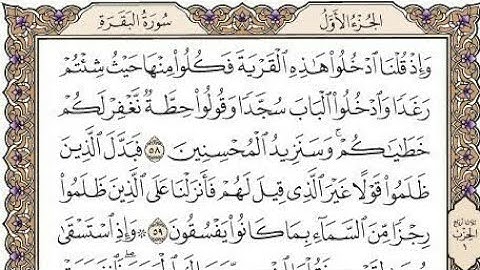 سُورَةُ البَقَرَةِ الجُزْءُ الأَوَّلُ
وَإِذْ قُلْنَا ادْخُلُوا هَٰذِهِ الْقَرْيَةَ فَكُلُوا مِنْهَا حَيْثُ شِئْتُمْ
رَغَدًا وَادْخُلُوا الْبَابَ سُجَّدًا وَقُولُوا حِطَّةٌ نَّغْفِرْ لَكُمْ
خَطَايَاكُمْ ۚ وَسَنَزِيدُ الْمُحْسِنِينَ ٥٨ فَبَدَّلَ الَّذِينَ
ظَلَمُوا قَوْلًا غَيْرَ الَّذِي قِيلَ لَهُمْ فَأَنزَلْنَا عَلَى الَّذِينَ ظَلَمُوا
رِجْزًا مِّنَ السَّمَاءِ بِمَا كَانُوا يَفْسُقُونَ ٥٩ ۞ وَإِذِ اسْتَسْقَىٰ
الحِزْب
١